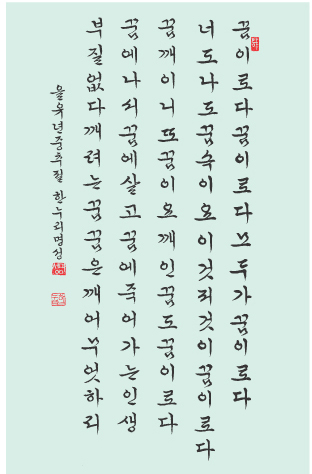 꿈이로다꿈이로다모두가꿈이로다
너도나도꿈속이요이것저것이꿈이로다
꿈깨이니또꿈이요깨인꿈도꿈이로다
꿈에나서꿈에살고꿈에죽어가는인생
부질없다깨려는꿈꿈은깨어무엇하리
을유년중추절 한누리명성